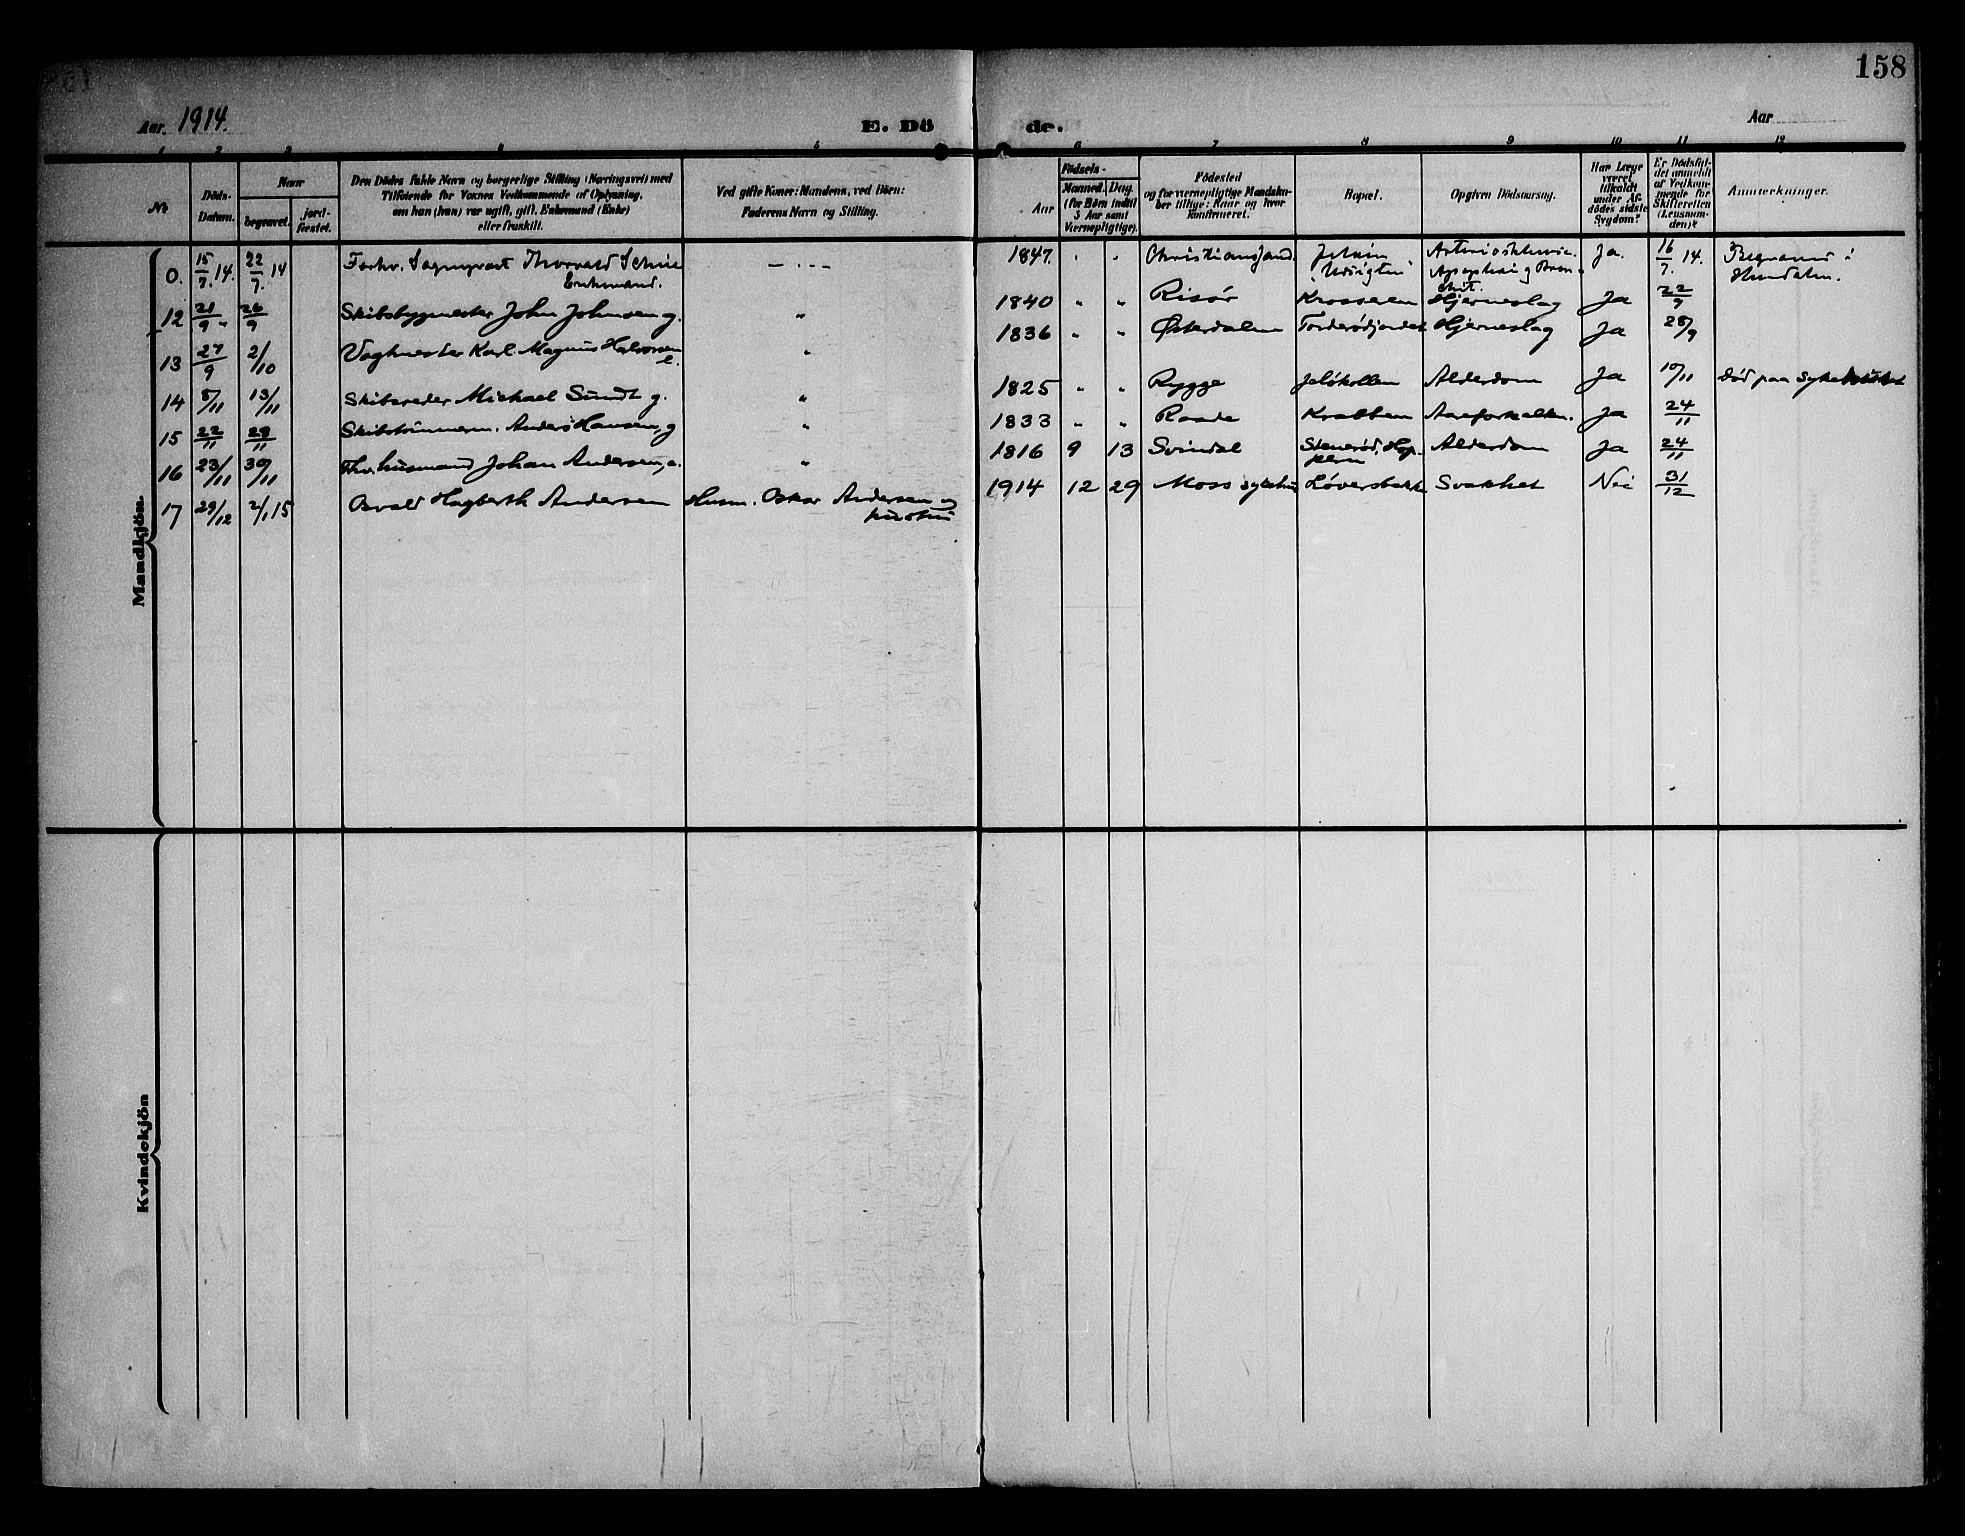 158
Aar. 1914.
E. Dö de.
Aar
1 2 3 4 5 6 7 8 9 10 11 12
№
Döds-Datum.
Naar
begravet.
jord-fæstet.
Den Dödes fulde Navn og borgerlige Stilling (Næringsvei) med
Tilföiende for Voxnes Vedkommende af Oplysning,
om han (hun) var ugift, gift, Enkemand (Enke)
eller fraskilt.
Ved gifte Koner: Mandens, ved Börn:
Faderens Navn og Stilling.
Födsels-
Aar
Maaned. Dag.
(for Börn indtil
3 Aar samt
Værnepligtige).
Födested
og for værnepligtige Mandskaber tillige: Naar og hvor
konfirmeret.
Bopæl.
Opgiven Dödsaarsag.
Har Læge
været
tilkaldt
under Afdödes sidste
Sygdom?
Er Dödsfaldet anmeldt
af Vedkommende for
Skifteretten
(Lensmanden)?
Anmærkninger.
Mandkjön
0. 15/7. 14. 22/7. 14 Forhv. Sogneprest Thorvald Enkemand. — . - — 1847. Christiansand. Ja. 16/7. 14. i
12 21/9 " 26/9 Skibsbygmester John Johnsen g. " 1840 " " Risør Krosseren Hjerneslag Ja 22/9
13 27/9 2/10 Vagtmester Karl Magnus Halvorsen e. " 1836 " " Østerdalen Torderødjordet Hjerneslag Ja 28/9
14 8/11 13/11 Skibsreder Michael Sundt g. " 1825 " " Rygge Jeløkollen Alderdom Ja 10/11 Død paa
15 22/11 29/11 Skibstømmerm. Anders Hansen, g " 1833 " " Raade Krabben Aareforkalkn. Ja 24/11
16 23/11 30/11 Fhv. husmand Johan Andersen, e. " 1816 9 13 Svindal Alderdom Ja 24/11
17 29/12 2/1 15 Osvald Hagbarth Andersen Husm. Oskar Andersen og hustru 1914 12 29 Moss sykehus Løversbakke Svakhet Nei 31/12
Kvindekjön